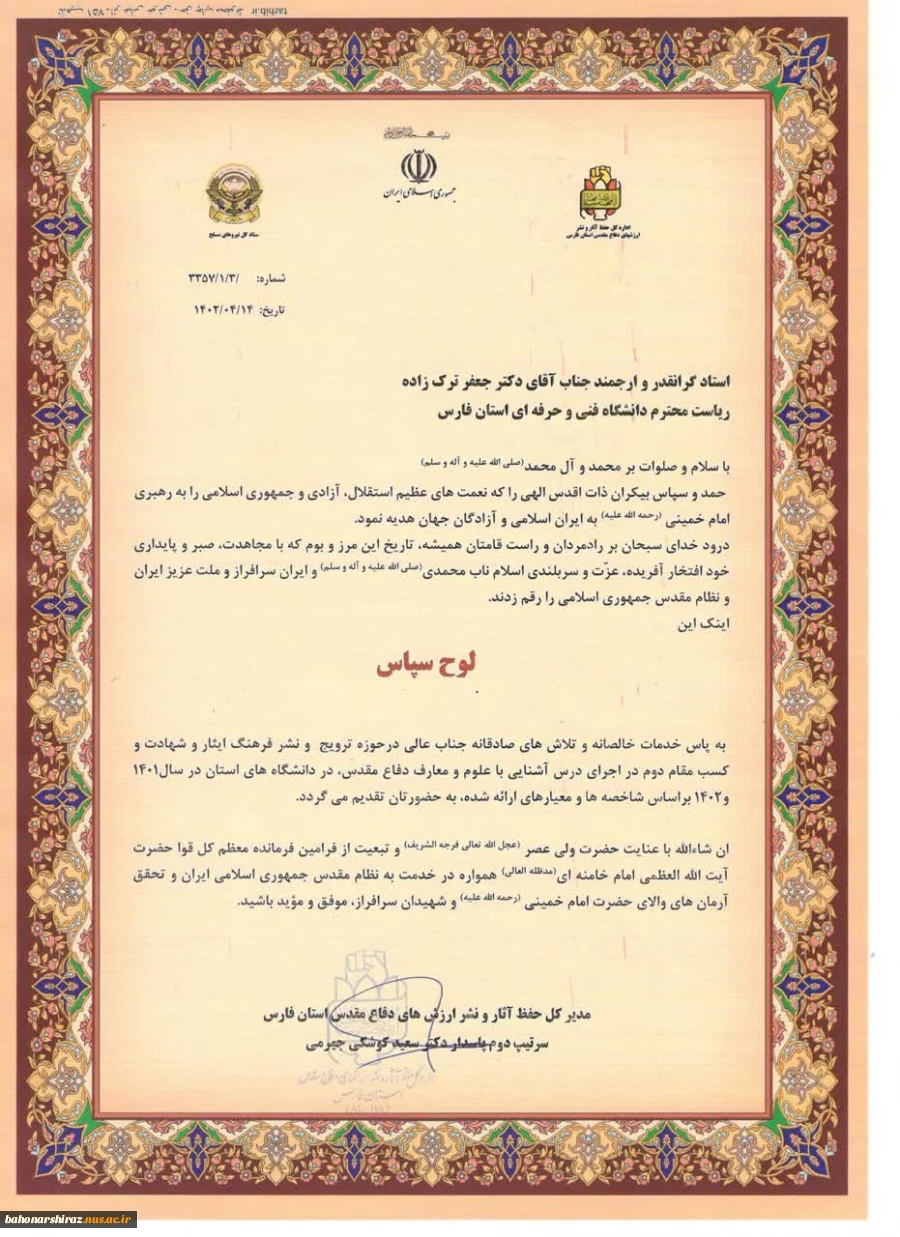 tazhib.ir
جمهوری اسلامی ایران
اداره کل حفظ آثار و نشر
ارزشهای دفاع مقدس استان فارس
ستاد کل نیروهای مسلح
شماره: /۳۳۵۷/۱/۳
تاریخ: ۱۴۰۲/۰۴/۱۴
استاد گرانقدر و ارجمند جناب آقای دکتر جعفر ترک زاده
ریاست محترم دانشگاه فنی و حرفه ای استان فارس
با سلام و صلوات بر محمد و آل محمد(صلی الله علیه و آله و سلم)
حمد و سپاس بیکران ذات اقدس الهی را که نعمت های عظیم استقلال، آزادی و جمهوری اسلامی را به رهبری
امام خمینی (رحمه الله علیه) به ایران اسلامی و آزادگان جهان هدیه نمود.
درود خدای سبحان بر رادمردان و راست قامتان همیشه، تاریخ این مرز و بوم که با مجاهدت، صبر و پایداری
خود افتخار آفریده، عزّت و سربلندی اسلام ناب محمدی(صلی الله علیه و آله و سلم) و ایران سرافراز و ملت عزیز ایران
و نظام مقدس جمهوری اسلامی را رقم زدند.
اینک این
لوح سپاس
به پاس خدمات خالصانه و تلاش های صادقانه جناب عالی درحوزه ترویج و نشر فرهنگ ایثار و شهادت و
کسب مقام دوم در اجرای درس آشنایی با علوم و معارف دفاع مقدس، در دانشگاه های استان در سال۱۴۰۱
و۱۴۰۲ براساس شاخصه ها و معیارهای ارائه شده، به حضورتان تقدیم می گردد.
ان شاءالله با عنایت حضرت ولی عصر (عجل الله تعالی فرجه الشریف) و تبعیت از فرامین فرمانده معظم کل قوا حضرت
آیت الله العظمی امام خامنه ای(مدظله العالی) همواره در خدمت به نظام مقدس جمهوری اسلامی ایران و تحقق
آرمان های والای حضرت امام خمینی (رحمه الله علیه) و شهیدان سرافراز، موفق و مؤید باشید.
مدیر کل حفظ آثار و نشر ارزش های دفاع مقدس استان فارس
سرتیپ دوم پاسدار دکتر سعید کوشکی جهرمی
استان فارس
bahonarshiraz.nus.ac.ir